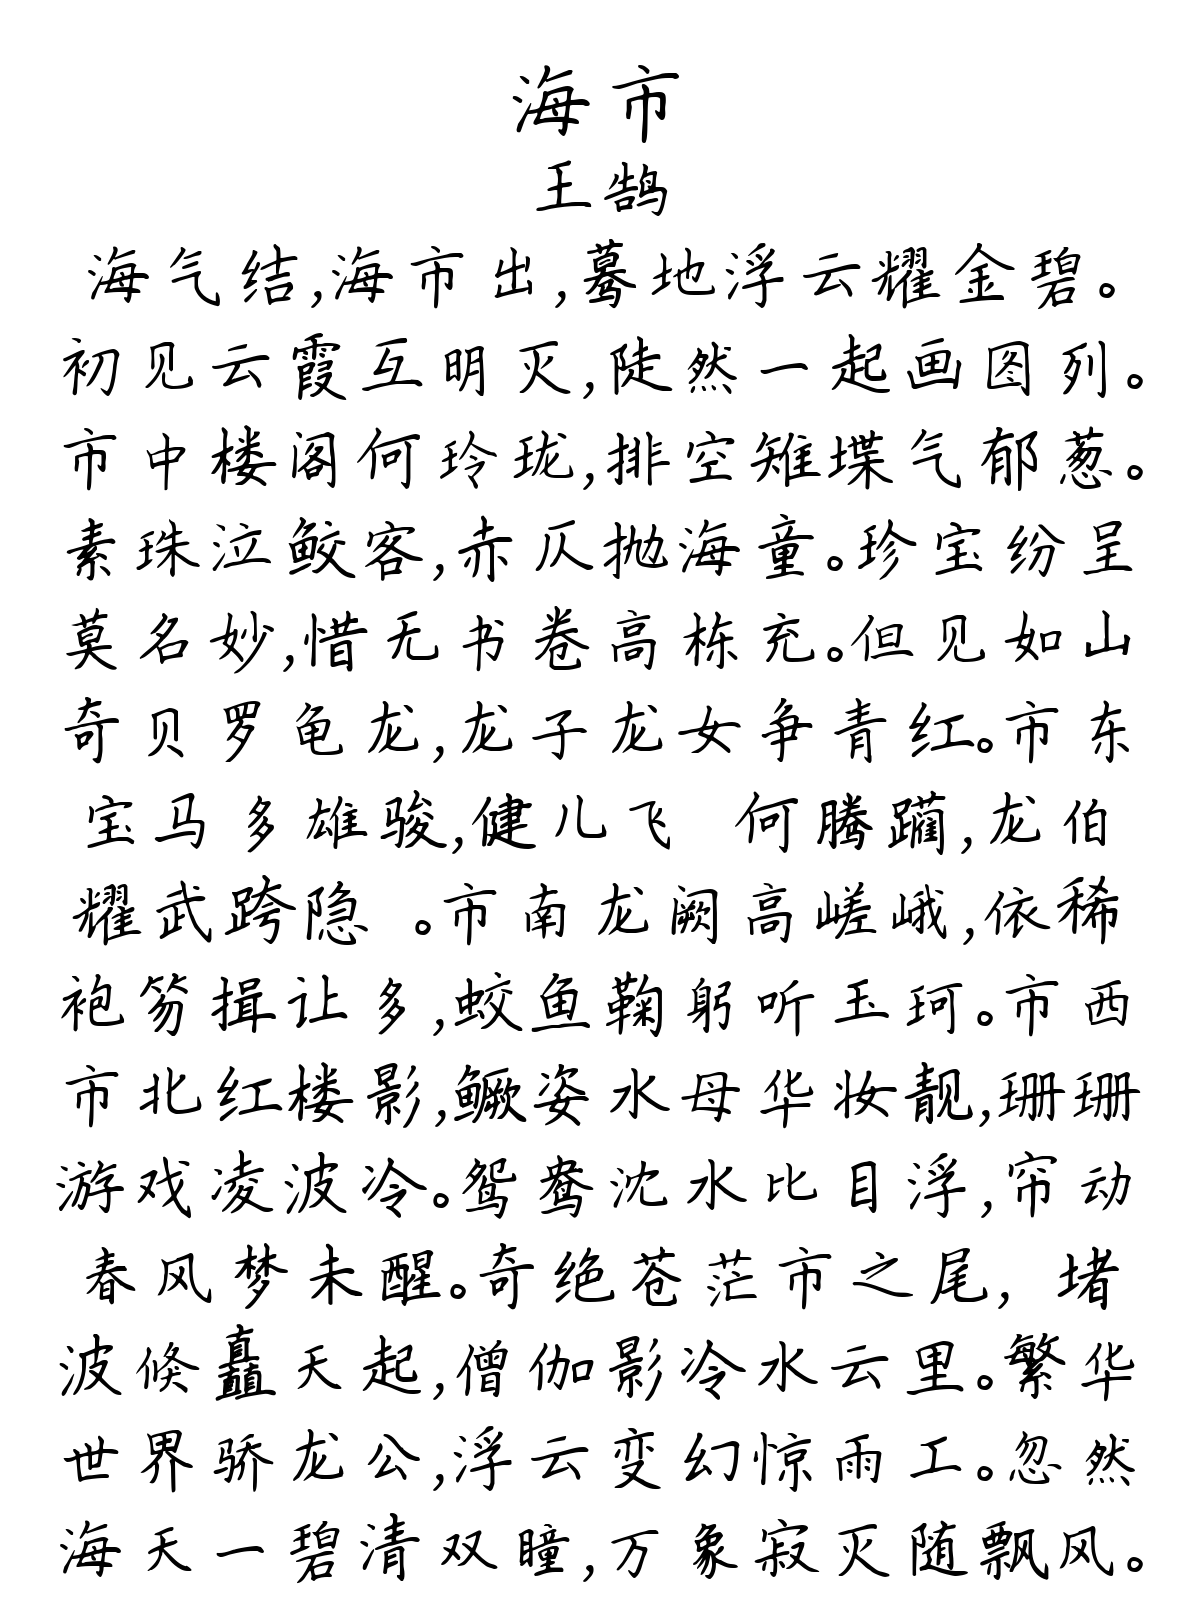 海市
王鹄
海气结,海市出,蓦地浮云耀金碧。
初见云霞互明灭,陡然一起画图列。
市中楼阁何玲珑,排空雉堞气郁葱。
素珠泣鲛客,赤仄抛海童。珍宝纷呈
莫名妙,惜无书卷高栋充。但见如山
奇贝罗龟龙,龙子龙女争青红。市东
宝马多雄骏,健儿飞 何腾躏,龙伯
耀武跨隐 。市南龙阙高嵯峨,依稀
袍笏揖让多,蛟鱼鞠躬听玉珂。市西
市北红楼影,鳜姿水母华妆靓,珊珊
游戏凌波冷。鸳鸯沈水比目浮,帘动
春风梦未醒。奇绝苍茫市之尾, 堵
波倏矗天起,僧伽影冷水云里。繁华
世界骄龙公,浮云变幻惊雨工。忽然
海天一碧清双瞳,万象寂灭随飘风。